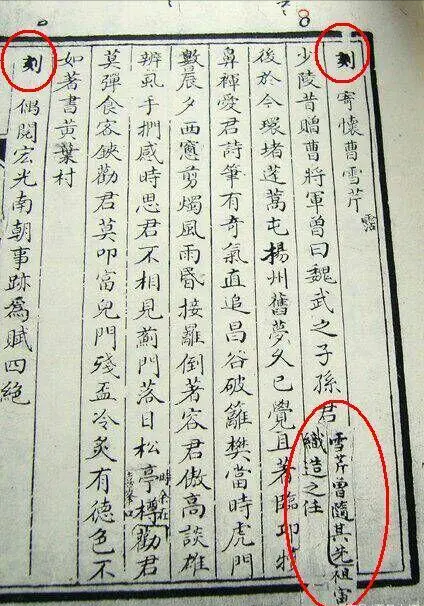 8
刻
寄懷曹雪芹 霑
少陵昔贈曹將軍曾曰魏武之子孫君
雪芹曾隨其先祖寅
織造之任
後於今環堵蓬蒿屯揚州舊夢久已覺且著臨邛犢
鼻褌愛君詩筆有奇氣直追昌谷破籬樊當時虎門
數晨夕西窻剪燭風雨昏接䍦倒著容君傲高談雄
辨虱手捫感時思君不相見薊門落日松亭樽時余在喜峯口勸君
莫彈食客鋏勸君莫叩富兒門殘盃冷炙有德色不
如著書黃葉村
刻
偶閱宏光南朝事跡為賦四絕